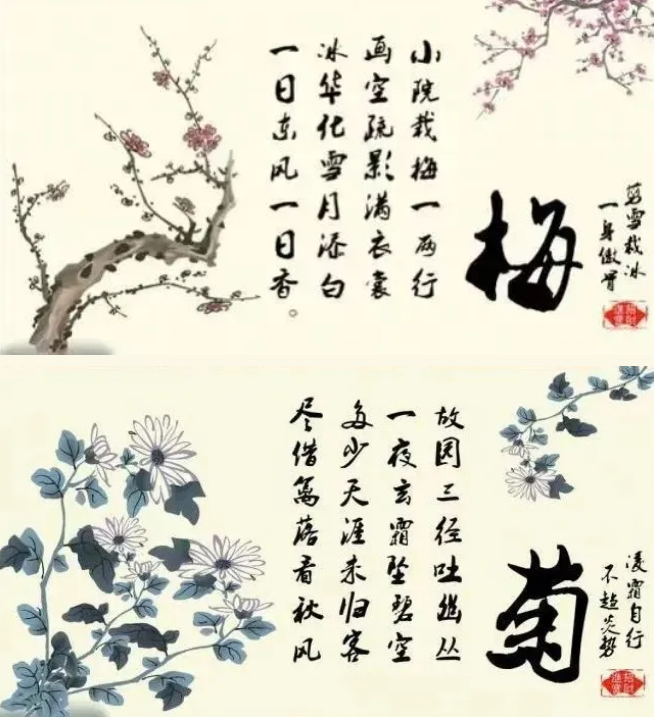 剪雪裁冰
一身傲骨
梅
小院栽梅一两行
画空疏影满衣裳
冰华化雪月添白
一日东风一日香。
凌霜自行
不趋炎势
菊
故园三径吐幽丛
一夜玄霜坠碧空
多少天涯未归客
尽借篱落看秋风